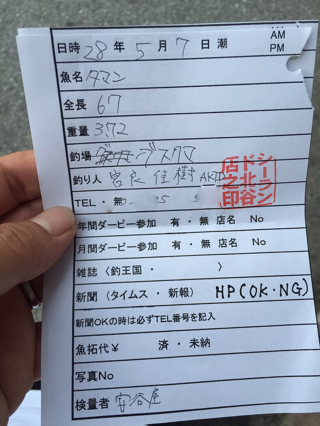 AM
日時 28 年 5 月 7 日 潮 PM
魚名 タマン
全長 67
重量 372
釣場 デスクマ
釣り人 宮良 佳樹
シーランド北谷店之印
TEL ・ 無
年間ダービー参加 有 ・ 無 店名 No
月間ダービー参加 有 ・ 無 店名 No
雑誌〈釣王国 ・ 〉
新聞（タイムス ・ 新報） HP(OK・NG)
新聞OKの時は必ずTEL番号を記入
魚拓代￥ 済 ・ 未納
写真No
検量者 安谷屋